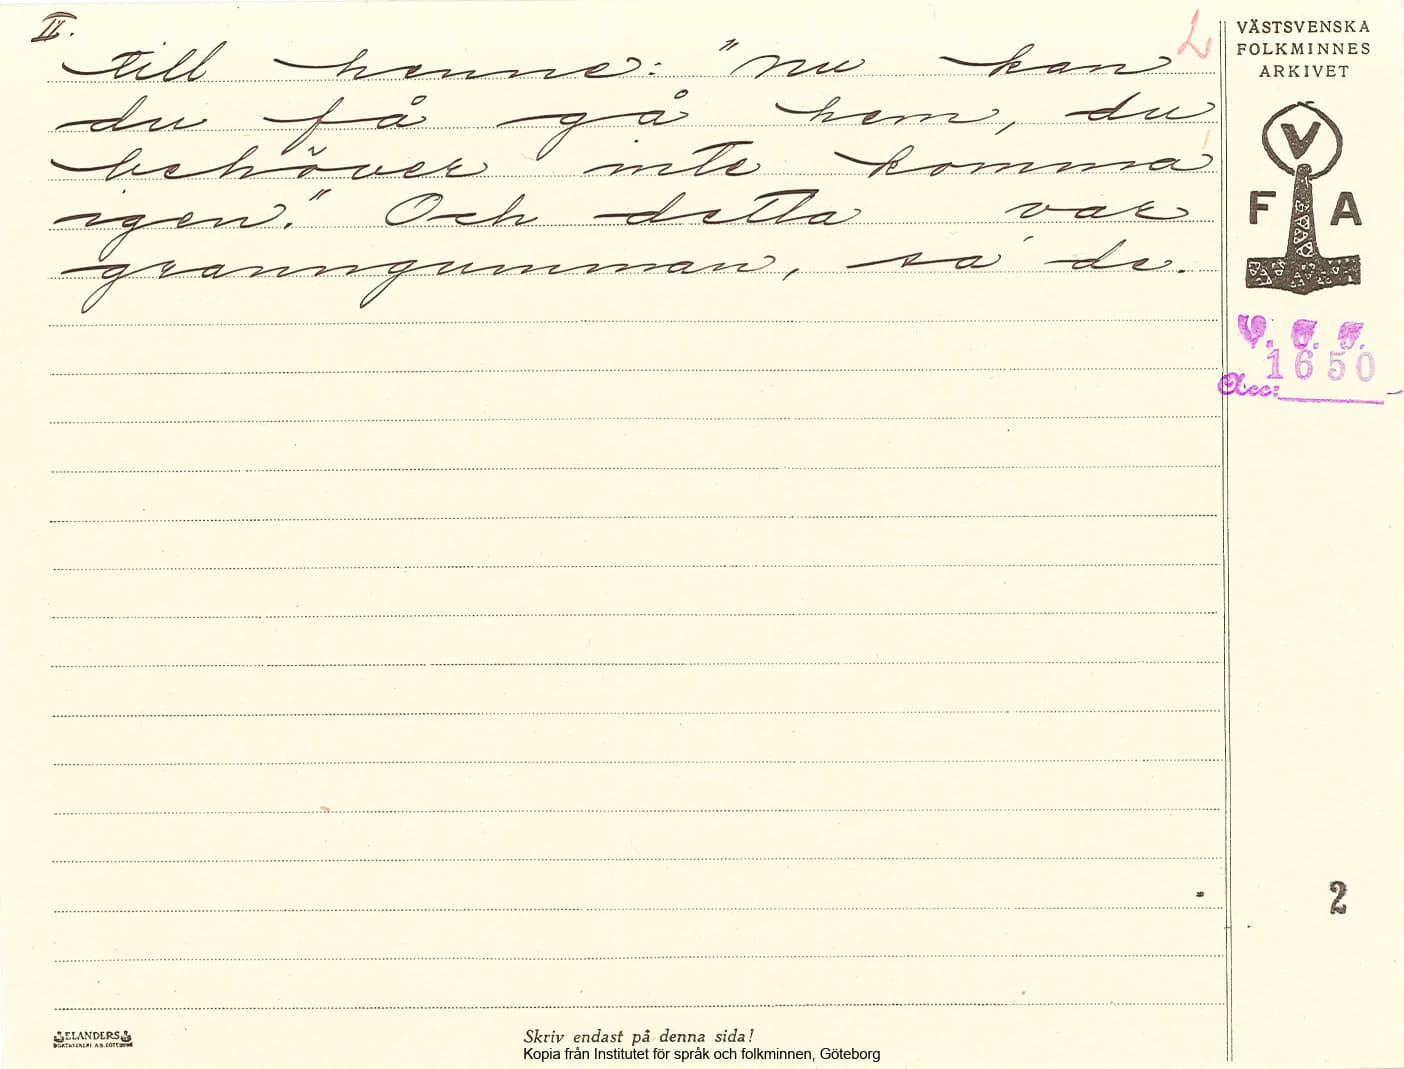 II.
till henne: "Nu kan
du få gå hem, du
behöver inte komma
igen." Och detta var
granngumman, sa de.
2
VÄSTSVENSKA
FOLKMINNES
ARKIVET
V
F A
V. F. F.
1650
Acc:
2
ELANDERS
BOKTRYCKERI A.B. GÖTEBORG
Skriv endast på denna sida!
Kopia från Institutet för språk och folkminnen, Göteborg